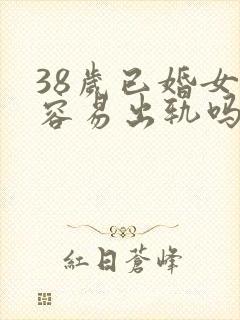 38歲已婚女
容易出轨吗
紅日蒼峰